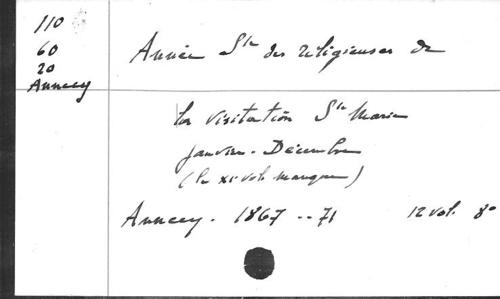 110
60
20
Annecy
Année Ste des religieuses de
la visitation Ste Marie
janvier - Décembre
(le xi vol. manque)
Annecy - 1867 -- 71 12 vol. 8°